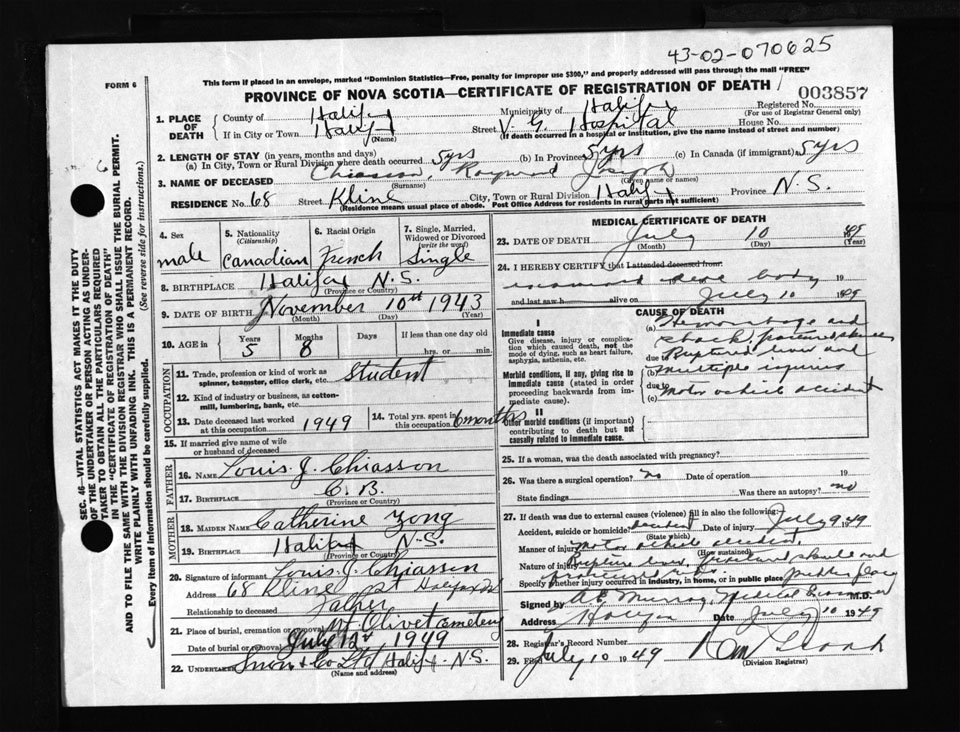 43-02-070625
This form if placed in an envelope, marked "Dominion Statistics—Free, penalty for improper use $300," and properly addressed will pass through the mail "FREE"
FORM 6
PROVINCE OF NOVA SCOTIA—CERTIFICATE OF REGISTRATION OF DEATH
003857
1. PLACE OF DEATH
County of Halifax Municipality of Halifax Registered No.
(For use of Registrar General only)
If in City or Town Halifax Street V. G. Hospital House No.
(Name) (If death occurred in a hospital or institution, give the name instead of street and number)
2. LENGTH OF STAY (in years, months and days)
(a) In City, Town or Rural Division where death occurred 5yrs (b) In Province 5yrs (c) In Canada (if immigrant) 5yrs
3. NAME OF DECEASED Chiasson, Raymond Joseph
(Surname) (Given name or names)
RESIDENCE No. 68 Street Kline City, Town or Rural Division Halifax Province N.S.
(Residence means usual place of abode. Post Office Address for residents in rural parts not sufficient)
4. Sex male
5. Nationality (Citizenship) Canadian
6. Racial Origin French
7. Single, Married, Widowed or Divorced (write the word) Single
8. BIRTHPLACE Halifax N.S.
(Province or Country)
9. DATE OF BIRTH November 10th 1943
(Month) (Day) (Year)
10. AGE in Years 5 Months 8 If less than one day old
hrs. or min.
OCCUPATION
11. Trade, profession or kind of work as spinner, teamster, office clerk, etc. Student
12. Kind of industry or business, as cotton-mill, lumbering, bank, etc.
13. Date deceased last worked at this occupation 1949
14. Total yrs. spent in this occupation 6 months
15. If married give name of wife or husband of deceased
FATHER
16. NAME Louis J. Chiasson
17. BIRTHPLACE C. B.
(Province or Country)
MOTHER
18. MAIDEN NAME Catherine
19. BIRTHPLACE Halifax N.S.
(Province or Country)
20. Signature of informant Louis J. Chiasson
Address 68 Kline St Halifax
Relationship to deceased Father
21. Place of burial, cremation or removal Mt Olivet Cemetery
Date of burial or removal July 1949
22. UNDERTAKER Snow & Co Ltd Halifax N.S.
(Name and address)
MEDICAL CERTIFICATE OF DEATH
23. DATE OF DEATH July 10 49
(Month) (Day) (Year)
24. I HEREBY CERTIFY that I attended deceased from:
examined dead body 19
and last saw h alive on July 10 1949
CAUSE OF DEATH
I
Immediate cause
Give disease, injury or complication which caused death, not the mode of dying, such as heart failure, asphyxia, asthenia, etc.
Morbid conditions, if any, giving rise to immediate cause (stated in order proceeding backwards from immediate cause).
II
Other morbid conditions (if important) contributing to death but not causally related to immediate cause.
(a) Hemorrhage and
shock, fractured skull
due to Ruptured liver and
(b) multiple injuries
due to
(c) Motor vehicle accident
25. If a woman, was the death associated with pregnancy?
26. Was there a surgical operation? no Date of operation 19
State findings Was there an autopsy? no
27. If death was due to external causes (violence) fill in also the following:
Accident, suicide or homicide? accident Date of injury July 9 1949
(State which)
Manner of injury Motor vehicle accident.
(How sustained)
Nature of injury Rupture liver, fractured skull and
fractured ribs.
Specify whether injury occurred in industry, in home, or in public place public place
Signed by A E Murray, Medical Examiner M.D.
Address Halifax Date July 10 1949
28. Registrar's Record Number
29. Filed July 10 1949
(Division Registrar)
SEC. 46—VITAL STATISTICS ACT MAKES IT THE DUTY
OF THE UNDERTAKER OR PERSON ACTING AS UNDER-
TAKER TO OBTAIN ALL THE PARTICULARS REQUIRED
IN THE "CERTIFICATE OF REGISTRATION OF DEATH"
AND TO FILE THE SAME WITH THE DIVISION REGISTRAR WHO SHALL ISSUE THE BURIAL PERMIT.
WRITE PLAINLY WITH UNFADING INK. THIS IS A PERMANENT RECORD.
Every item of information should be carefully supplied. (See reverse side for instructions.)